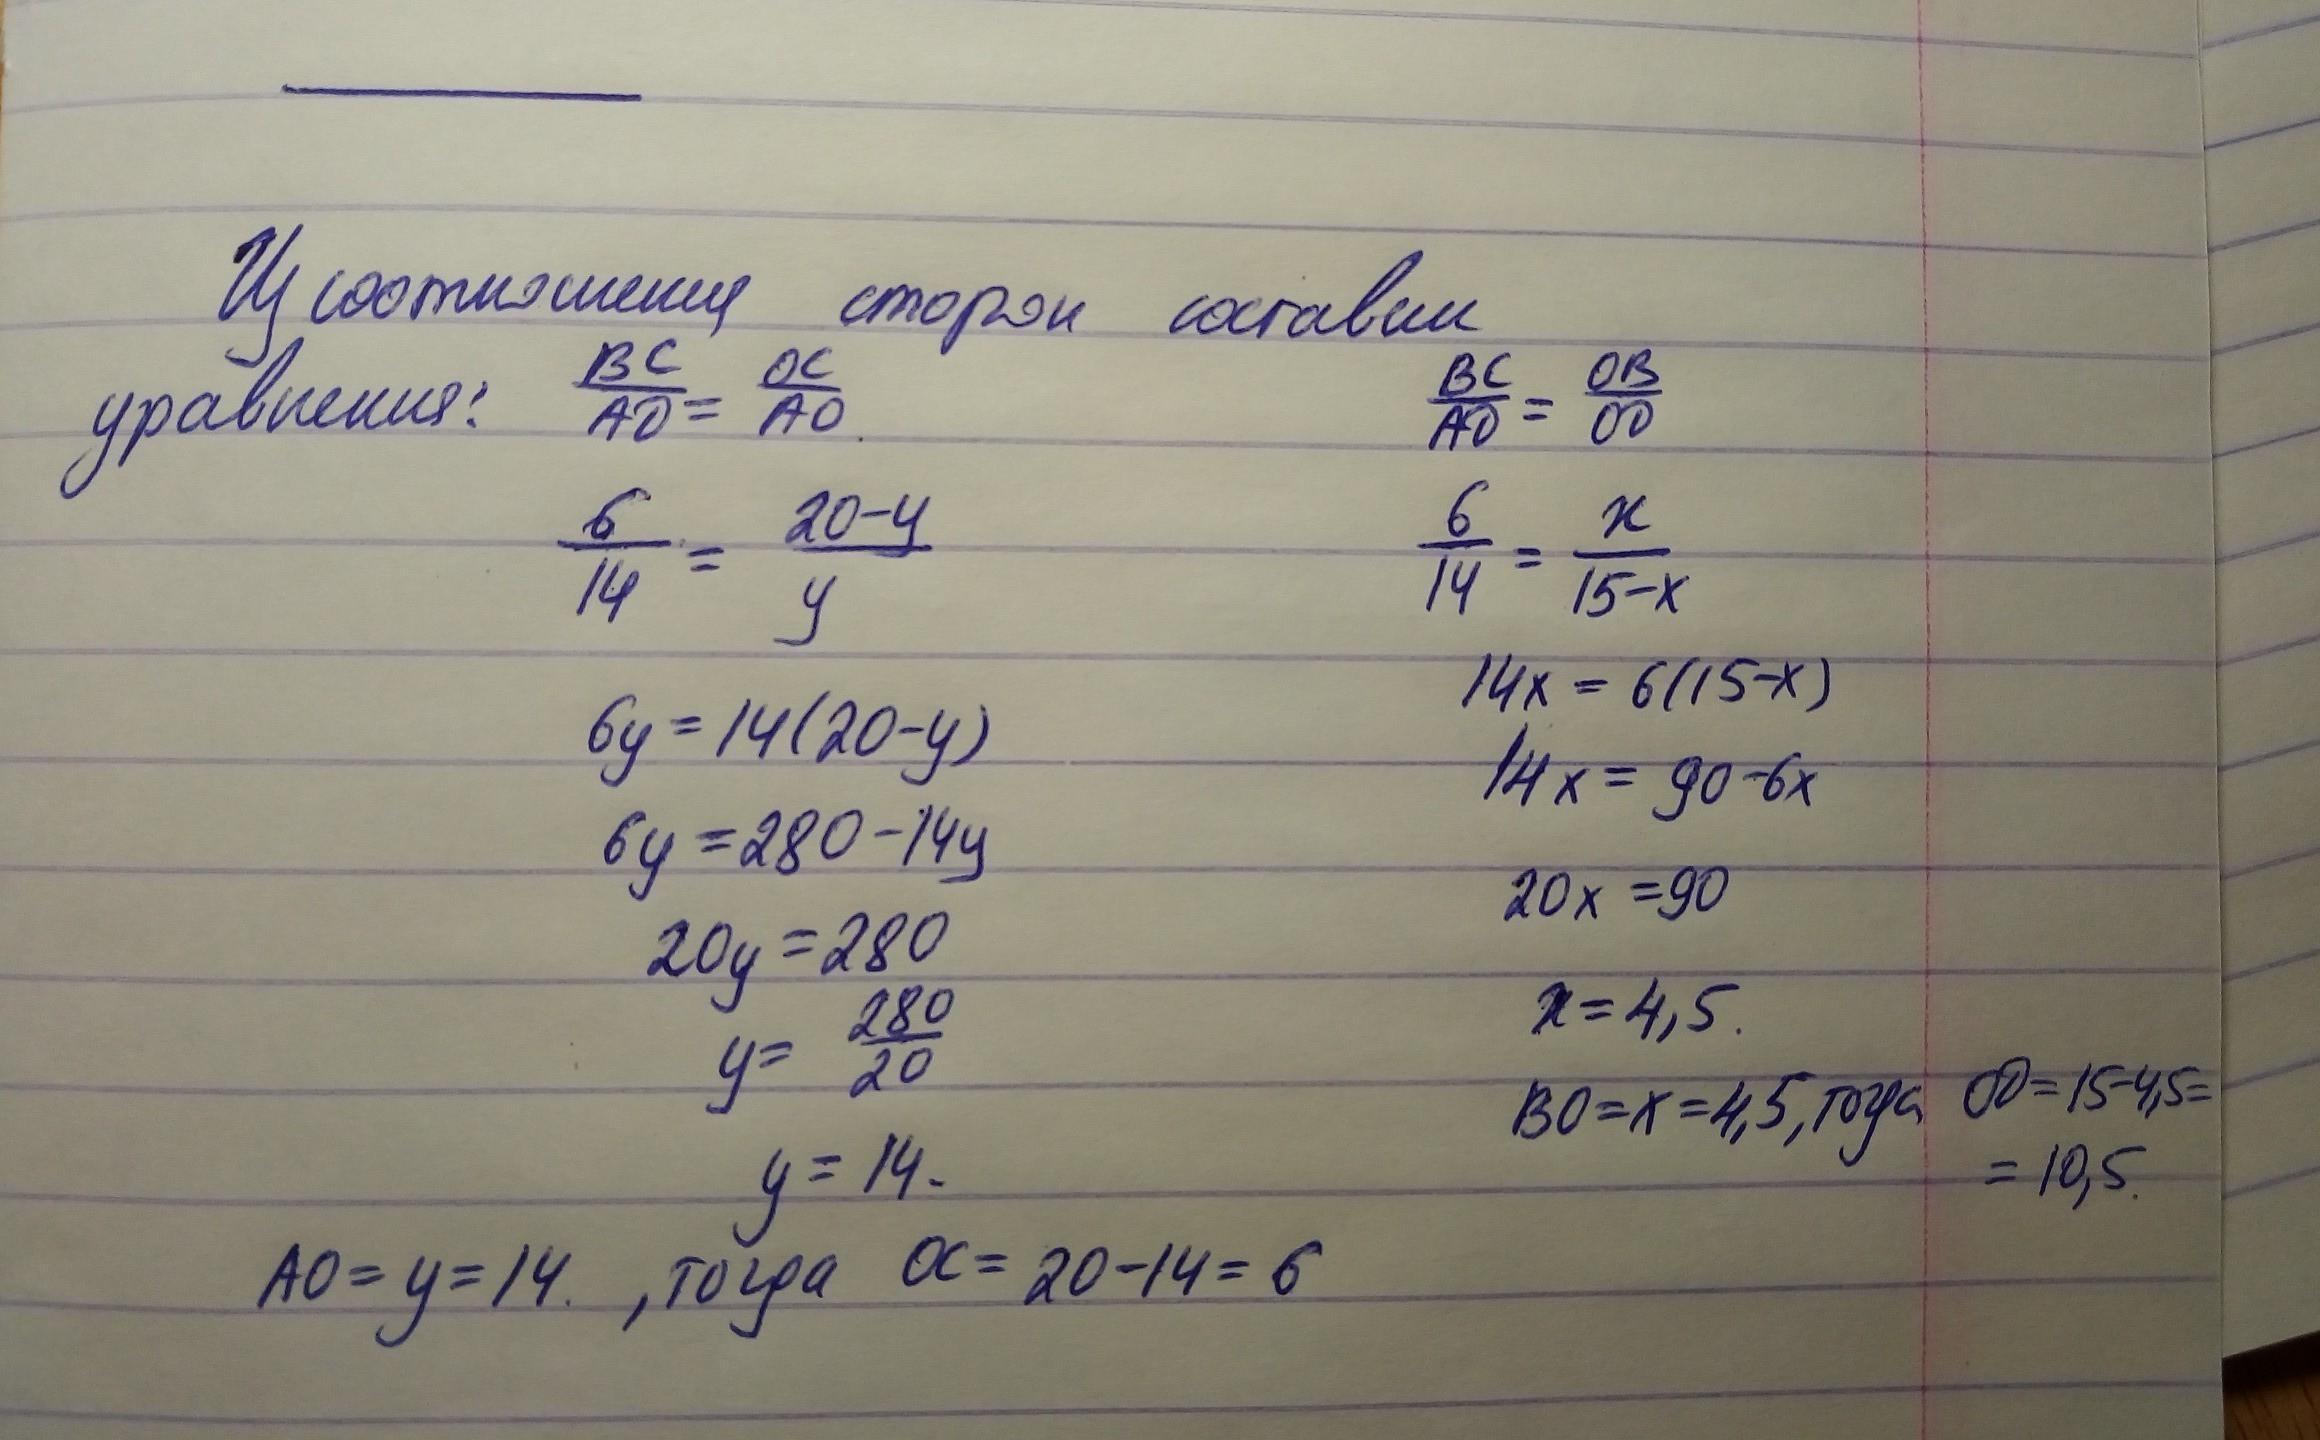 Из соотношения сторон составим
уравнения: BC/AD = OC/AO. BC/AD = OB/OD
6/14 = 20-y/y 6/14 = x/15-x
6y = 14(20-y) 14x = 6(15-x)
6y = 280-14y 14x = 90-6x
20y = 280 20x = 90
y = 280/20 x = 4,5.
y = 14. BO = x = 4,5, тогда OD = 15-4,5 =
= 10,5.
AO = y = 14. , тогда OC = 20-14 = 6